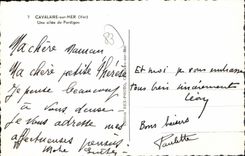 7 CAVALAIRE-sur-MER (Var)
Une allée de Pardigon
83
Ma chère maman
Ma chère petite
Je pense beaucoup
à vous deux
Je vous adresse mes
affectueuses pensées
Et moi je vous embrasse
tous bien sincèrement
Bons baisers
Paulette